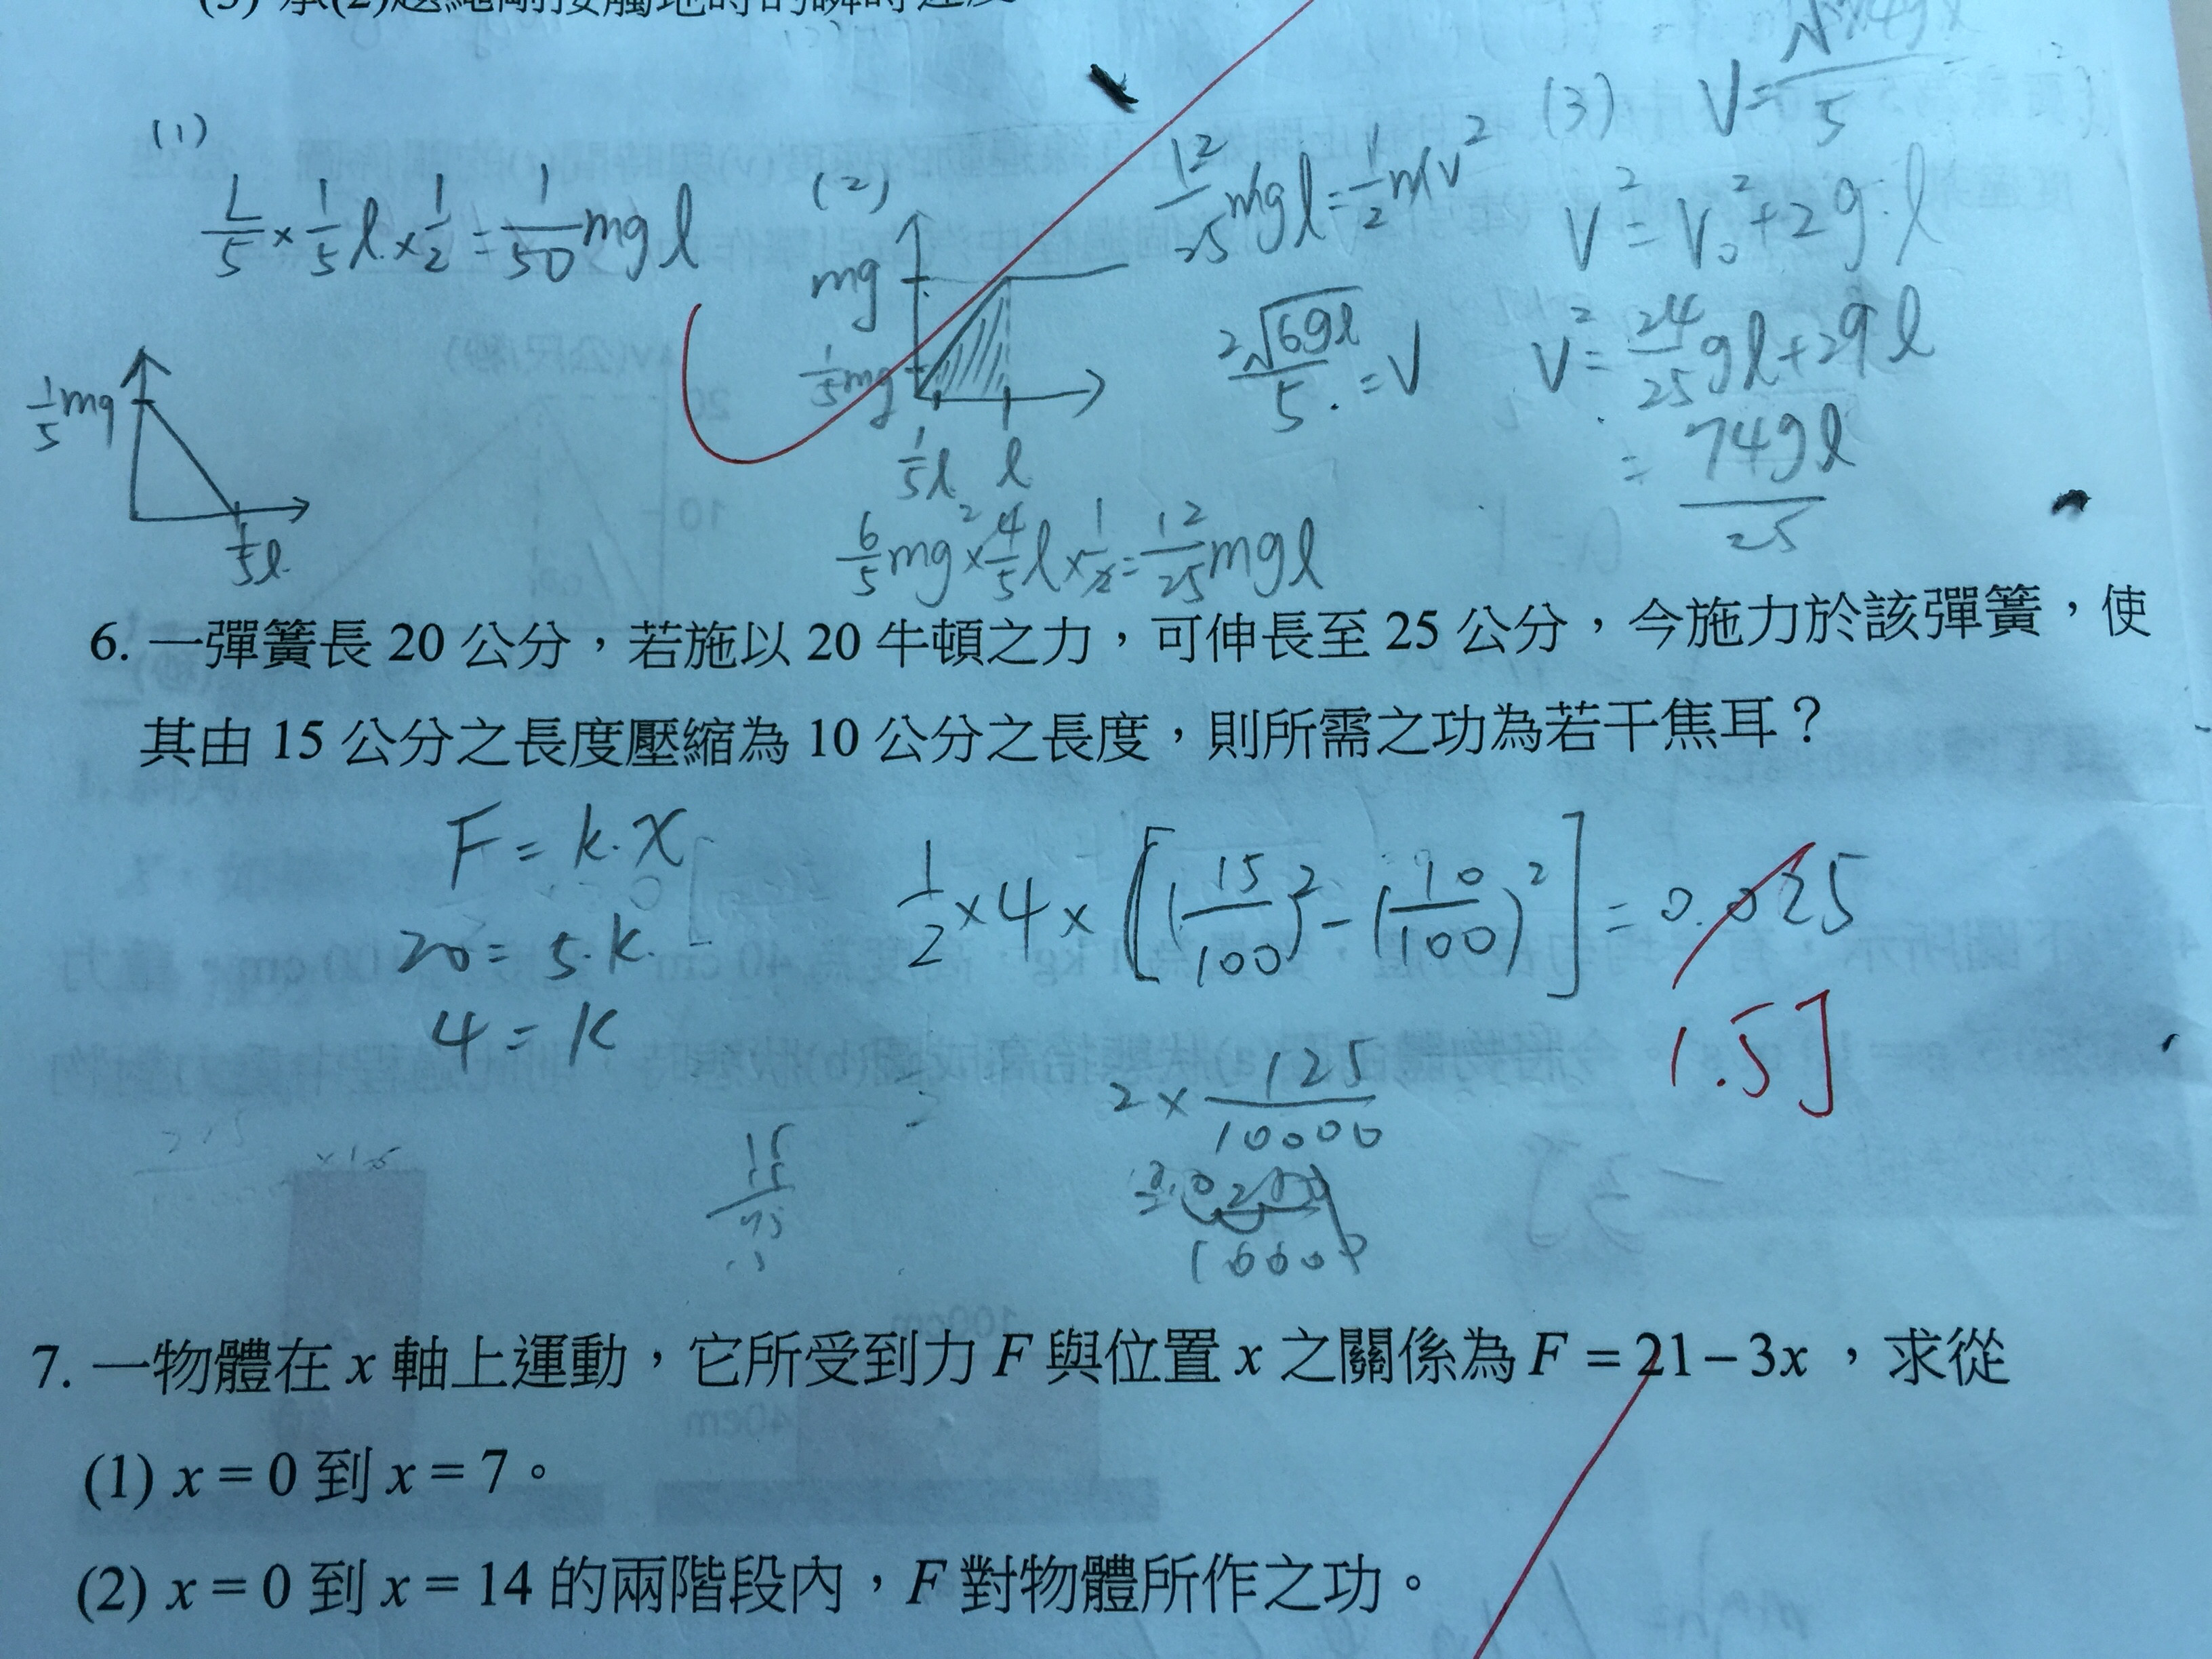 (1)
1/5 × 1/5 l × 1/2 = 1/50 mg l
1/5 mg
1/5 l
(2)
mg
1/5 mg
1/5 l l
6/5 mg × 4/5 l × 1/2 = 12/25 mg l
12/25 mg l = 1/2 m v²
2√6gl / 5 = V
(3) V =
5
V² = V₀² + 2g·l
V² = 24/25 gl + 2gl
= 74gl / 25
6. 一彈簧長 20 公分，若施以 20 牛頓之力，可伸長至 25 公分，今施力於該彈簧，使
其由 15 公分之長度壓縮為 10 公分之長度，則所需之功為若干焦耳？
F = k·x
20 = 5·k
4 = k
1/2 × 4 × [(15/100)² − (10/100)²] = 0.025
1.5J
2 × 125/10000
7. 一物體在 x 軸上運動，它所受到力 F 與位置 x 之關係為 F = 21 − 3x ，求從
(1) x = 0 到 x = 7。
(2) x = 0 到 x = 14 的兩階段內，F 對物體所作之功。